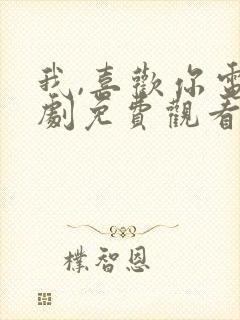 我,喜歡你電
劇免費觀看
樸智恩